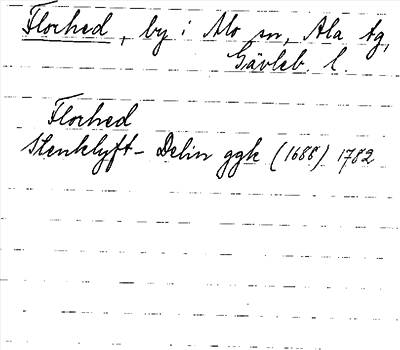 Florhed, by i Mo sn, Ala tg,
Gävleb. l.
Florhed
Stenklyft - Delin ggk (1688) 1782